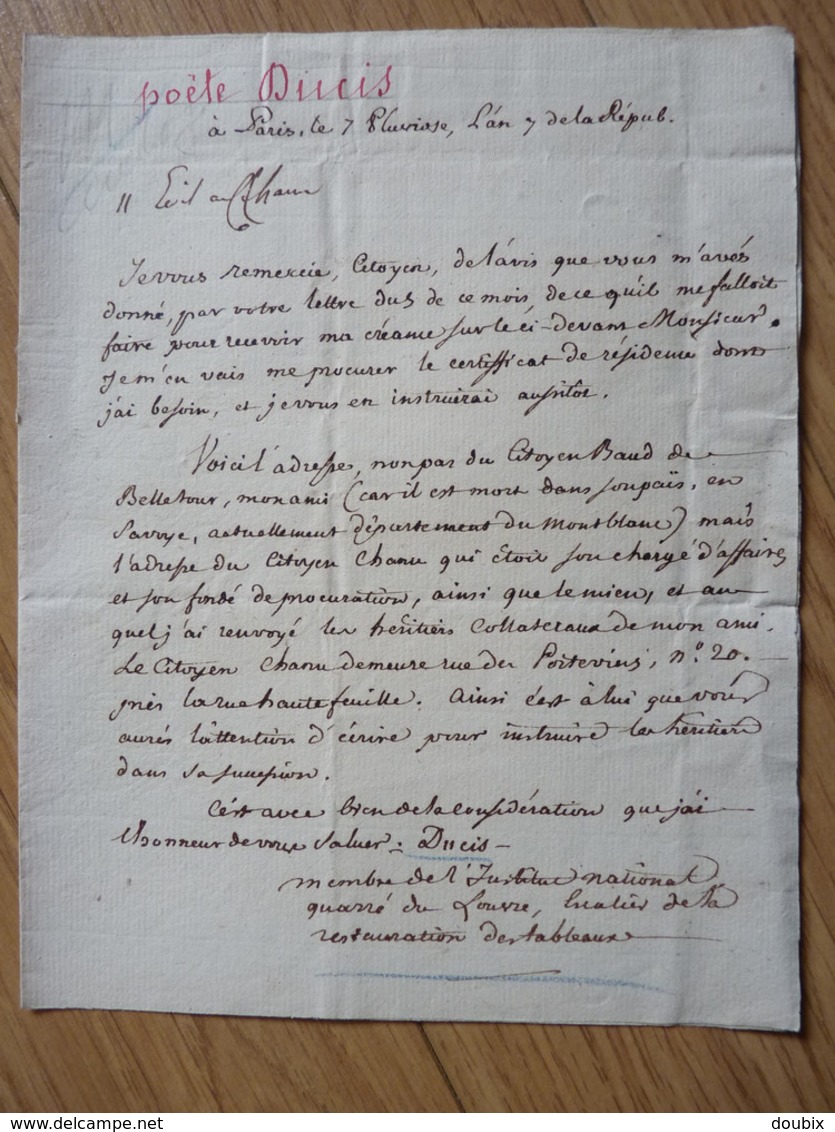 poëte Ducis
à Paris, le 7 Pluviose, L'an 7 de la Répub.
Je vous remercie, Citoyen, de l'avis que vous m'avés
donné, par votre lettre du 5 de ce mois, de ce qu'il me falloit
faire pour recevoir ma créance sur le ci-devant Monsieur.
Je m'en vais me procurer le certifficat de résidence dont
j'ai besoin, et je vous en instruirai aussitôt.
Voici l'adresse, non pas du Citoyen Baud de
Belletour, mon ami (car il est mort dans son païs, en
Savoye, actuellement département du Montblanc) mais
l'adresse du Citoyen Chanu qui étoit son chargé d'affaires
et son fondé de procuration, ainsi que le mien, et au
quel j'ai renvoyé les héritiers collateraux de mon ami.
Le Citoyen Chanu demeure rue des Poitevins, n.º 20.
près la rue hautefeuille. Ainsi c'est à lui que vous
aurés l'attention d'écrire pour instruire les héritiers
dans sa succession.
C'est avec bien de la considération que j'ai
l'honneur de vous saluer. Ducis
membre de l'Institut national
quarré du Louvre, Escalier de la
restauration des tableaux
delcampe.net
doubix